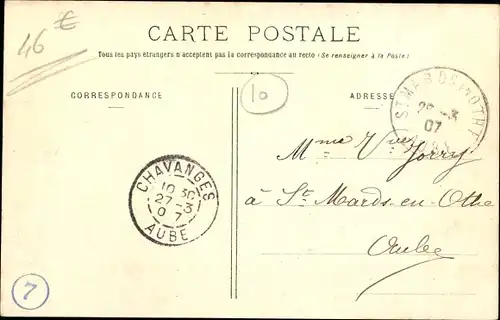 46 €
CARTE POSTALE
Tous les pays étrangers n'acceptent pas la correspondance au recto (Se renseigner à la Poste)
CORRESPONDANCE
ADRESSE
10
ST MARDS-EN-OTHE
28 -3
07
Mme Vve Jorry
à St Mards-en-Othe
Aube
CHAVANGES
10 30
27 -3
0 7
AUBE
7